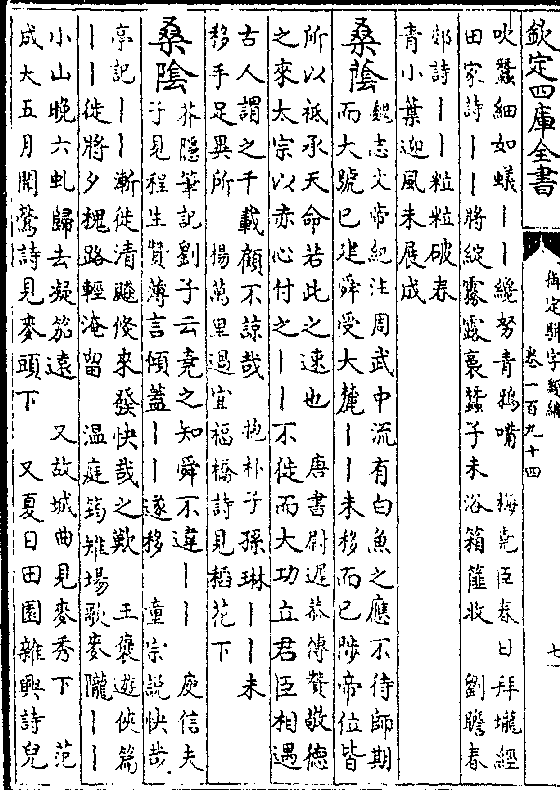 欽定四庫全書
御定駢字類編
卷一百九十四
七
吹蠶細如蟻丨丨纔努青鴉嘴　梅堯臣春日拜壠經
田家詩丨丨將綻露露裹蠶子未浴箱篚收　劉瞻春
郊詩丨丨粒粒破春
青小葉迎風未展成
桑蔭　魏志文帝紀注周武中流有白魚之應不待師期
而大號已建舜受大麓丨丨未移而已陟帝位皆
所以祗承天命若此之速也　唐書尉遲恭傳贊敬德
之來太宗以赤心付之丨丨不徙而大功立君臣相遇
古人謂之千載顧不諒哉　抱朴子孫琳丨丨未
移手足異所　楊萬里過宜福橋詩見稻花下
桑陰　芥隱筆記劉子云堯之知舜不違丨丨　庾信夫
子見程生贊薄言傾蓋丨丨遂移　童宗說快哉
亭記丨丨漸徙清飇倏來發快哉之歎　王褒遊俠篇
丨丨徙將夕槐路輕淹留　温庭筠雉場歌麥隴丨丨
小山晚六虬歸去凝笳遠　又故城曲見麥秀下　范
成大五月聞鶯詩見麥頭下　又夏日田園雜興詩兒